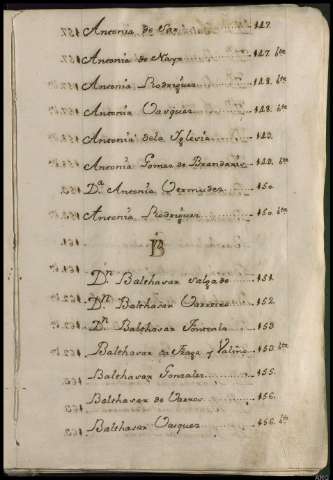 Antonia de Saa 147.
Antonia de Moya 147. bta
Antonia Rodrigues 148. bta
Antonia Vasques 148. bta
Antonia dela Iglesia 149.
Antonia Gomes de Brandariz 149. bta
Da. Antonia Vermudez 150.
Antonia Rodrigues 150. bta
B
Dn. Balthasar Salgado 151.
Dn. Balthasar 152.
Dn. Balthasar Fontenla 153
Balthasar de Fraga y Valiño 153. bta
Balthasar Gonzales 155.
Balthasar de 156.
Balthasar Vasques 156. bta